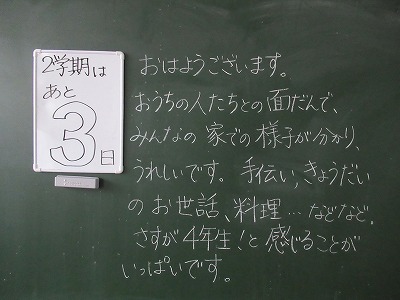 2学期は
あと
3
日
おはようございます。
おうちの人たちとの面だんで、
みんなの家での様子が分かり、
うれしいです。手伝い、きょうだい
のお世話、料理…などなど。
さすが4年生!と感じることが
いっぱいです。